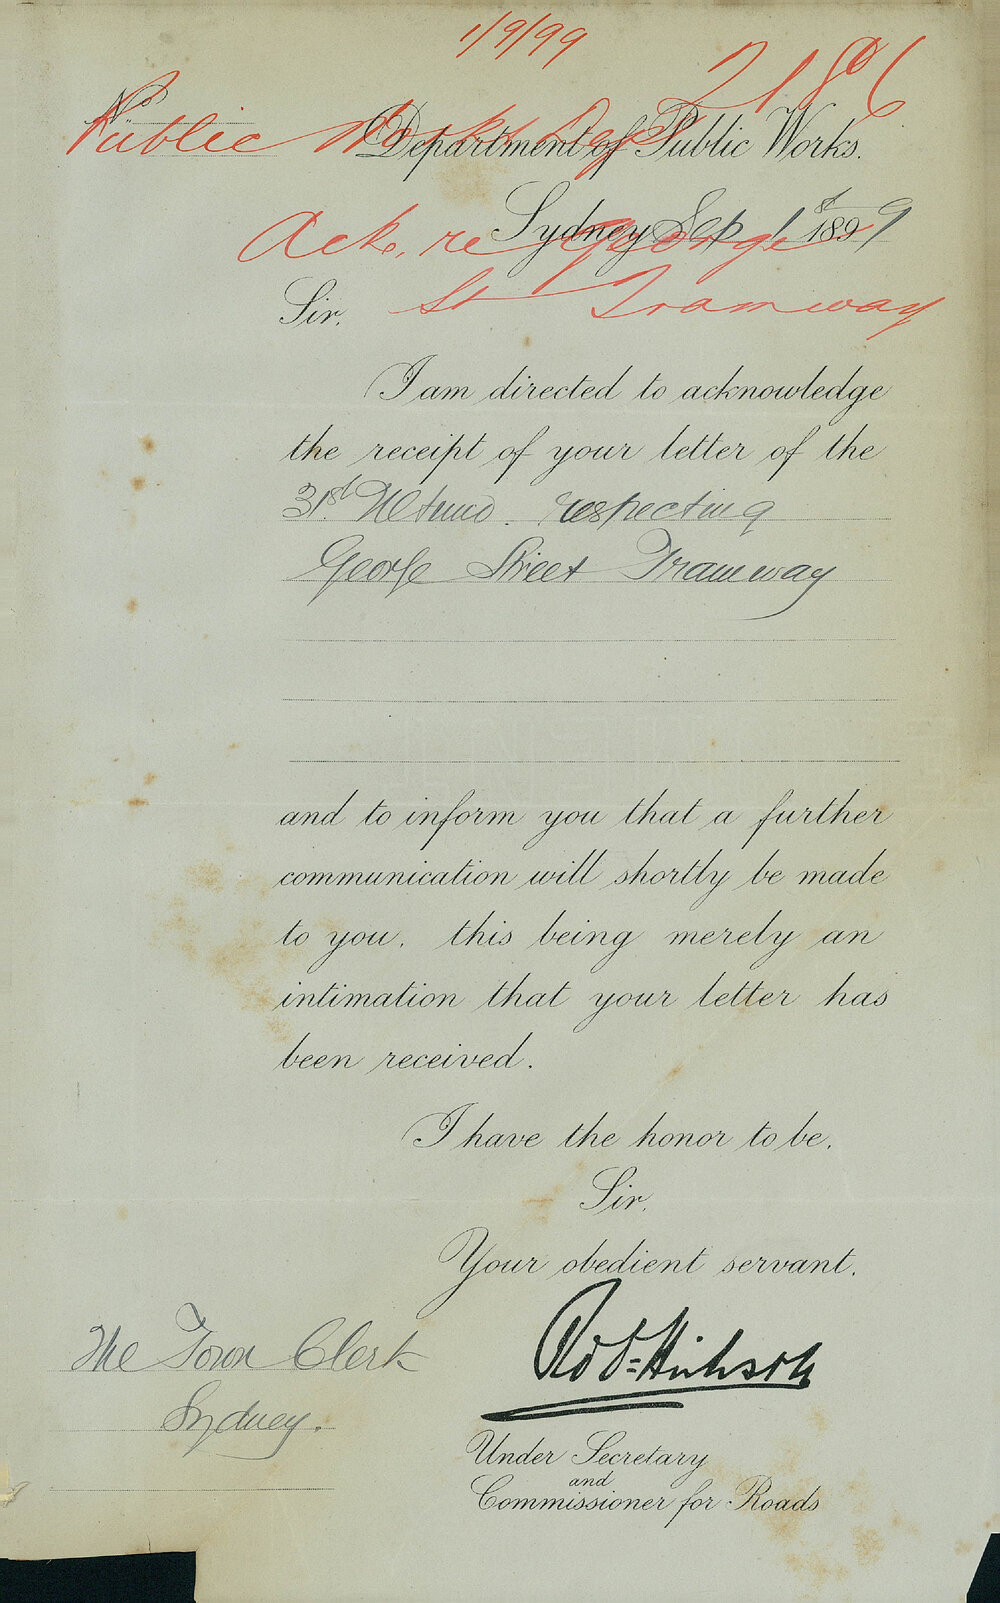 1/9/99
2186
No
Public Works Dept
Department of Public Works.
Sydney Sep 1st 1899
Ack. re George
St Tramway
Sir,
I am directed to acknowledge
the receipt of your letter of the
31st Ultimo. respecting
George Street Tramway
and to inform you that a further
communication will shortly be made
to you, this being merely an
intimation that your letter has
been received.
I have the honor to be,
Sir,
Your obedient servant,
Robt Hickson
The Town Clerk
Sydney.
Under Secretary
and
Commissioner for Roads